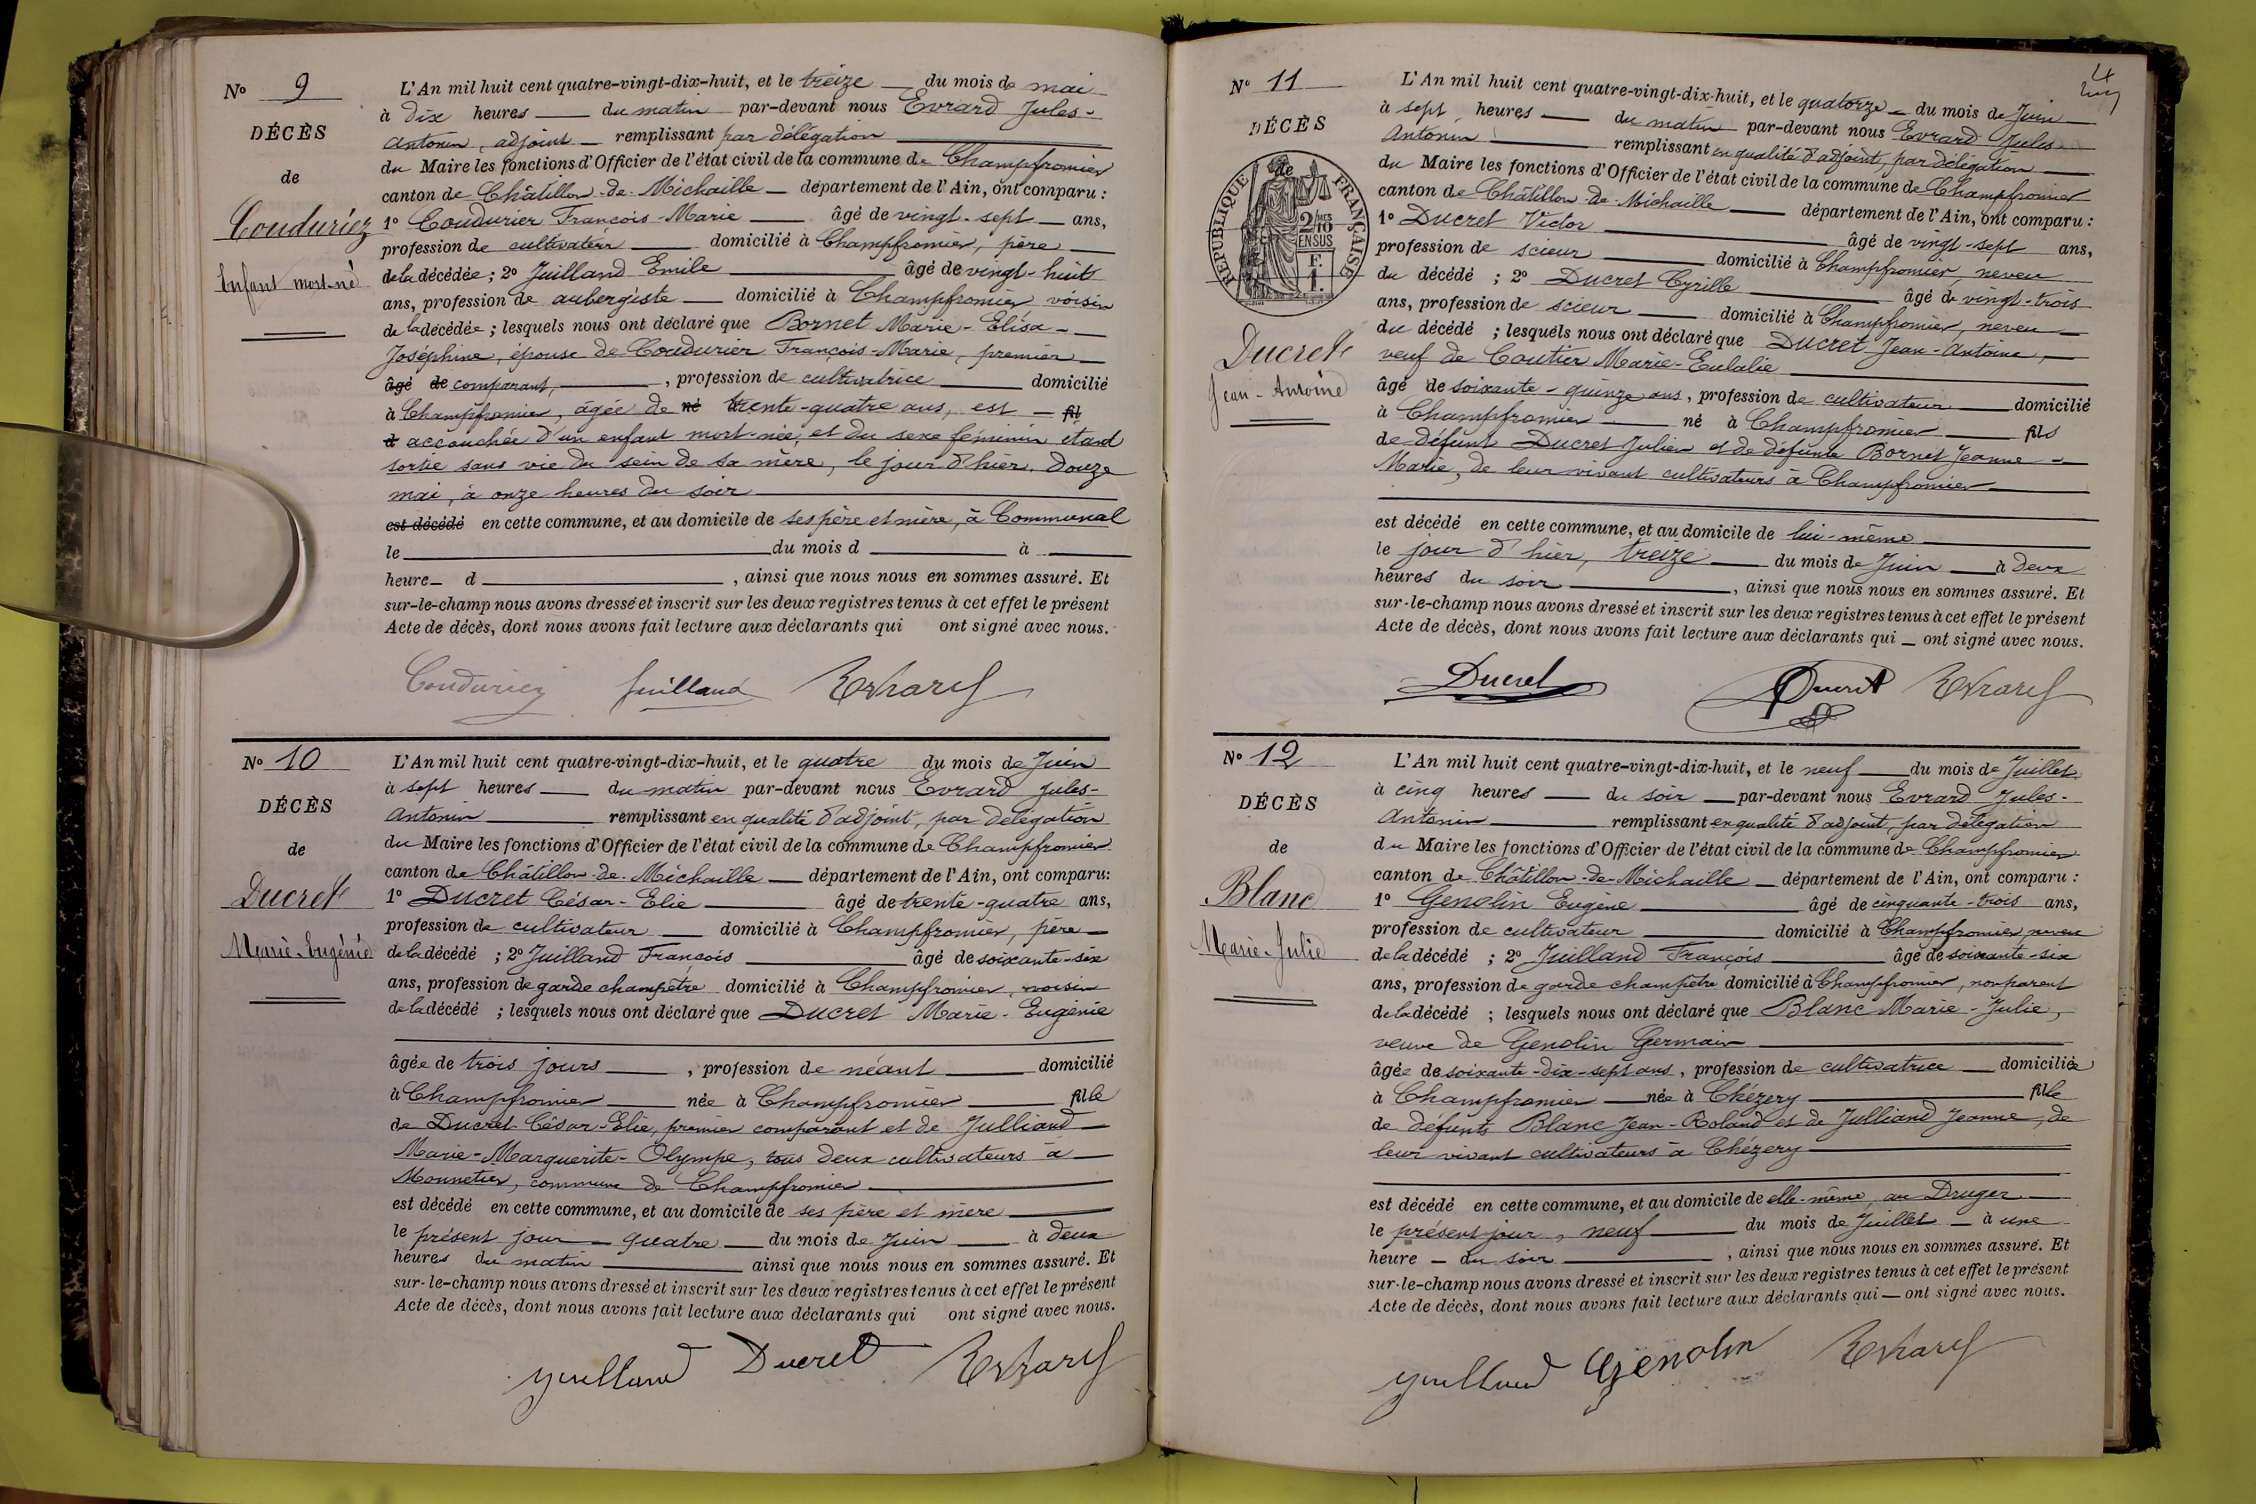 N° 9
DÉCÈS
de
Couduriez
Enfant mort-né
L'An mil huit cent quatre-vingt-dix-huit, et le treize du mois de mai
à dix heures du matin par-devant nous Evrard Jules-
Antonin, adjoint remplissant par délégation
du Maire les fonctions d'Officier de l'état civil de la commune de Champfromier
canton de Châtillon-de-Michaille département de l'Ain, ont comparu :
1° Coudurier François-Marie âgé de vingt-sept ans,
profession de cultivateur domicilié à Champfromier, père
de la décédée ; 2° Juilland Emile âgé de vingt-huit
ans, profession de aubergiste domicilié à Champfromier voisin
de la décédée ; lesquels nous ont déclaré que Bornet Marie-Elisa-
Joséphine, épouse de Coudurier François-Marie, premier
âgé de comparant, , profession de cultivatrice domicilié
à Champfromier, âgée de né trente-quatre ans, est fil
d accouchée d'un enfant mort-née, et du sexe féminin étant
sortie sans vie du sein de sa mère, le jour d'hier, douze
mai, à onze heures du soir
est décédé en cette commune, et au domicile de ses père et mère, à Communal
le du mois d à
heure d , ainsi que nous nous en sommes assuré. Et
sur-le-champ nous avons dressé et inscrit sur les deux registres tenus à cet effet le présent
Acte de décès, dont nous avons fait lecture aux déclarants qui ont signé avec nous.
Couduriez Juilland Evrard
N° 10
DÉCÈS
de
Ducret
Marie-Eugénie
L'An mil huit cent quatre-vingt-dix-huit, et le quatre du mois de Juin
à sept heures du matin par-devant nous Evrard Jules-
Antonin remplissant en qualité d'adjoint, par délégation
du Maire les fonctions d'Officier de l'état civil de la commune de Champfromier
canton de Châtillon-de-Michaille département de l'Ain, ont comparu:
1° Ducret César-Elie âgé de trente-quatre ans,
profession de cultivateur domicilié à Champfromier, père
de la décédé ; 2° Juilland François âgé de soixante-six
ans, profession de garde champêtre domicilié à Champfromier, voisin
de la décédé ; lesquels nous ont déclaré que Ducret Marie-Eugénie
âgée de trois jours , profession de néant domicilié
à Champfromier née à Champfromier fille
de Ducret César-Elie, premier comparant et de Julliand
Marie-Marguerite-Olympe, tous deux cultivateurs à
Monnetier, commune de Champfromier
est décédé en cette commune, et au domicile de ses père et mère
le présent jour quatre du mois de Juin à deux
heures du matin ainsi que nous nous en sommes assuré. Et
sur-le-champ nous avons dressé et inscrit sur les deux registres tenus à cet effet le présent
Acte de décès, dont nous avons fait lecture aux déclarants qui ont signé avec nous.
Juilland Ducret Evrard
4
N° 11
DÉCÈS
de
RÉPUBLIQUE FRANÇAISE
2/10 EN SUS
F.
1.
Ducret
Jean-Antoine
L'An mil huit cent quatre-vingt-dix-huit, et le quatorze du mois de Juin
à sept heures du matin par-devant nous Evrard Jules
Antonin remplissant en qualité d'adjoint, par délégation
du Maire les fonctions d'Officier de l'état civil de la commune de Champfromier
canton de Châtillon-de-Michaille département de l'Ain, ont comparu :
1° Ducret Victor âgé de vingt-sept ans,
profession de scieur domicilié à Champfromier, neveu
du décédé ; 2° Ducret Cyrille âgé de vingt-trois
ans, profession de scieur domicilié à Champfromier, neveu
du décédé ; lesquels nous ont déclaré que Ducret Jean-Antoine,
veuf de Coutier Marie-Eulalie
âgé de soixante-quinze ans, profession de cultivateur domicilié
à Champfromier né à Champfromier fils
de défunt Ducret Julien et de défunte Bornet Jeanne-
Marie, de leur vivant cultivateurs à Champfromier
est décédé en cette commune, et au domicile de lui-même
le jour d'hier, treize du mois de Juin à deux
heures du soir , ainsi que nous nous en sommes assuré. Et
sur-le-champ nous avons dressé et inscrit sur les deux registres tenus à cet effet le présent
Acte de décès, dont nous avons fait lecture aux déclarants qui ont signé avec nous.
Ducret Ducret Evrard
N° 12
DÉCÈS
de
Blanc
Marie-Julie
L'An mil huit cent quatre-vingt-dix-huit, et le neuf du mois de Juillet
à cinq heures du soir par-devant nous Evrard Jules-
Antonin remplissant en qualité d'adjoint, par délégation
du Maire les fonctions d'Officier de l'état civil de la commune de Champfromier
canton de Châtillon-de-Michaille département de l'Ain, ont comparu :
1° Genolin Eugène âgé de cinquante-trois ans,
profession de cultivateur domicilié à Champfromier neveu
de la décédé ; 2° Juilland François âgé de soixante-six
ans, profession de garde champêtre domicilié à Champfromier, non parent
de la décédé ; lesquels nous ont déclaré que Blanc Marie-Julie,
veuve de Genolin Germain
âgée de soixante-dix-sept ans, profession de cultivatrice domiciliée
à Champfromier née à Chézery fille
de défunts Blanc Jean-Roland et de Julliand Jeanne, de
leur vivant cultivateurs à Chézery
est décédé en cette commune, et au domicile de elle-même au Druger
le présent jour, neuf du mois de Juillet à une
heure du soir , ainsi que nous nous en sommes assuré. Et
sur-le-champ nous avons dressé et inscrit sur les deux registres tenus à cet effet le présent
Acte de décès, dont nous avons fait lecture aux déclarants qui ont signé avec nous.
Juilland Genolin Evrard